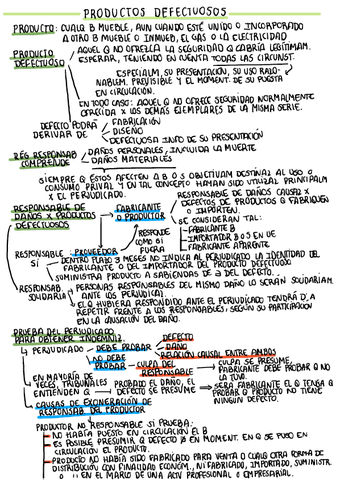 PRODUCTOS DEFECTUOSOS
PRODUCTO: CUALQ B MUEBLE, AUN CUANDO ESTÉ UNIDO O INCORPORADO
A OTRO B MUEBLE O INMUEB, EL GAS O LA ELECTRICIDAD
PRODUCTO
DEFECTUOSO
AQUEL Q NO OFREZCA LA SEGURIDAD Q CABRÍA LEGÍTIMAM.
ESPERAR, TENIENDO EN CUENTA TODAS LAS CIRCUNST.
ESPECIALM, SU PRESENTACIÓN, SU USO RAZO-
NABLEM. PREVISIBLE Y EL MOMENT. DE SU PUESTA
EN CIRCULACIÓN.
EN TODO CASO: AQUEL Q NO OFRECE SEGURIDAD NORMALMENTE
OFRECIDA X LOS DEMÁS EJEMPLARES DE LA MISMA SERIE.
DEFECTO PODRÁ
DERIVAR DE
FABRICACIÓN
DISEÑO
DEFECTUOSA INFO DE SU PRESENTACIÓN
RÉG RESPONSAB
COMPRENDE
DAÑOS PERSONALES, INCLUIDA LA MUERTE
DAÑOS MATERIALES
SIEMPRE Q ÉSTOS AFECTEN A B Ó S OBJETIVAM DESTINAL AL USO O
CONSUMO PRIVAL Y EN TAL CONCEPTO HAYAN SIDO UTILIZAL PRINCIPALM
X EL PERJUDICADO.
RESPONSABLE DE
DAÑOS X PRODUCTOS
DEFECTUOSOS
FABRICANTE
O PRODUCTOR
RESPONSABLE DE DAÑOS CAUSAL X
DEFECTOS DE PRODUCTOS Q FABRIQUEN
O IMPORTEN.
SE CONSIDERAN TAL:
FABRICANTE B
IMPORTADOR B Ó S EN UE
FABRICANTE APARENTE
PROVEEDOR
RESPONDE
COMO SI
FUERA
RESPONSABLE
SI
DENTRO PLAZO 3 MESES NO INDICA AL PERJUDICADO LA IDENTIDAD DEL
FABRICANTE O DEL IMPORTADOR DEL PRODUCTO DEFECTUOSO
SUMINISTRA PRODUCTO A SABIENDAS DE Ǝ DEL DEFECTO.
RESPONSAB.
SOLIDARIA
PERSONAS RESPONSABLES DEL MISMO DAÑO LO SERÁN SOLIDARIAM.
ANTE LOS PERJUDICAL.
EL Q HUBIERA RESPONDIDO ANTE EL PERJUDICADO TENDRÁ D. A
REPETIR FRENTE A LOS RESPONSABLES, SEGÚN SU PARTICIPACIÓN
EN LA CAUSACIÓN DEL DAÑO.
PRUEBA DEL PERJUDICADO
PARA OBTENER INDEMNIZ.
PERJUDICADO
DEBE PROBAR
DEFECTO
DAÑO
RELACIÓN CAUSAL ENTRE AMBOS
NO DEBE
PROBAR
CULPA DEL
RESPONSABLE
CULPA SE PRESUME,
FABRICANTE DEBE PROBAR Q NO
LA TUVO.
EN MAYORÍA DE
VECES, TRIBUNALES
ENTIENDEN Q
PROBADO EL DAÑO, EL
DEFECTO SE PRESUME
SERÁ FABRICANTE EL Q TENGA Q
PROBAR Q PRODUCTO NO TIENE
NINGÚN DEFECTO.
CAUSAS DE EXONERACIÓN DE
RESPONSAB DEL PRODUCTOR
PRODUCTOR NO RESPONSABLE SI PRUEBA:
NO HABÍA PUESTO EN CIRCULACIÓN EL B
ES POSIBLE PRESUMIR Q DEFECTO Ǝ EN MOMENT. EN Q SE PUSO EN
CIRCULACIÓN EL PRODUCTO.
PRODUCTO NO HABÍA SIDO FABRICADO PARA VENTA O CUALQ OTRA FORMA DE
DISTRIBUCIÓN CON FINALIDAD ECONÓM., NI FABRICADO, IMPORTADO, SUMINISTR.
O EN EL MARCO DE UNA ACTV PROFESIONAL O EMPRESARIAL.